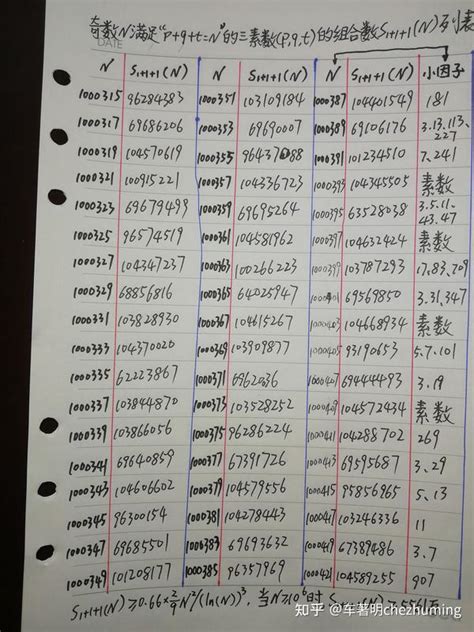 奇数N满足"p+q+t=N"的三素数(p,q,t)的组合数S1+1+1(N)列表
DATE
N S1+1+1(N) N S1+1+1(N) N S1+1+1(N) 小因子
1000315 96284383 1000351 103109184 1000387 104401549 181
1000317 69686206 1000353 69690007 1000389 69106176 3.13.113.227
1000319 104570619 1000355 1000391 101234510 7.241
1000321 100915221 1000357 104336723 1000393 104345505 素数
1000323 69679499 1000359 69695264 1000395 63528038 3.5.11.43.47
1000325 96574519 1000361 104581962 1000397 104632424 素数
1000327 104347237 1000363 100266223 1000399 103787293 17.83.709
1000329 68856816 1000365 64025947 1000401 69569850 3.31.347
1000331 103828930 1000367 104615267 1000403 104668934 素数
1000333 104370020 1000369 103909877 1000405 93190653 5.7.101
1000335 62223867 1000371 1000407 69444493 3.19
1000337 103844870 1000373 103528252 1000409 104572434 素数
1000339 103866056 1000375 96286224 1000411 104288702 269
1000341 69640859 1000377 67391726 1000413 69595687 3.29
1000343 104606602 1000379 104579556 1000415 95856965 5.13
1000345 96300154 1000381 104278443 1000417 103246336 11
1000347 69685501 1000383 69693632 1000419 67389486 3.7
1000349 101208177 1000385 96357969 1000421 104589255 907
S1+1+1(N)≥0.66×2/9N²/(ln(N))³, 当N≥10⁶时 S1+1+1(N)≥
知乎 @车著明chezhuming